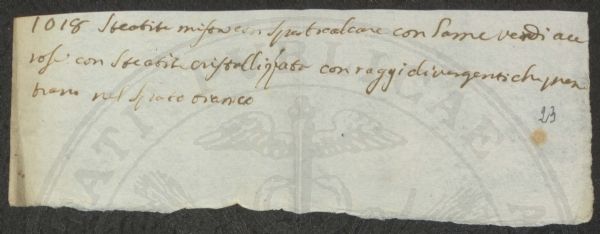 1018 Steatite mista con spato calcare con Lame verdi ace
rose con Steatite cristallizzata con raggi divergenti che pene
trano nel spato bianco
23